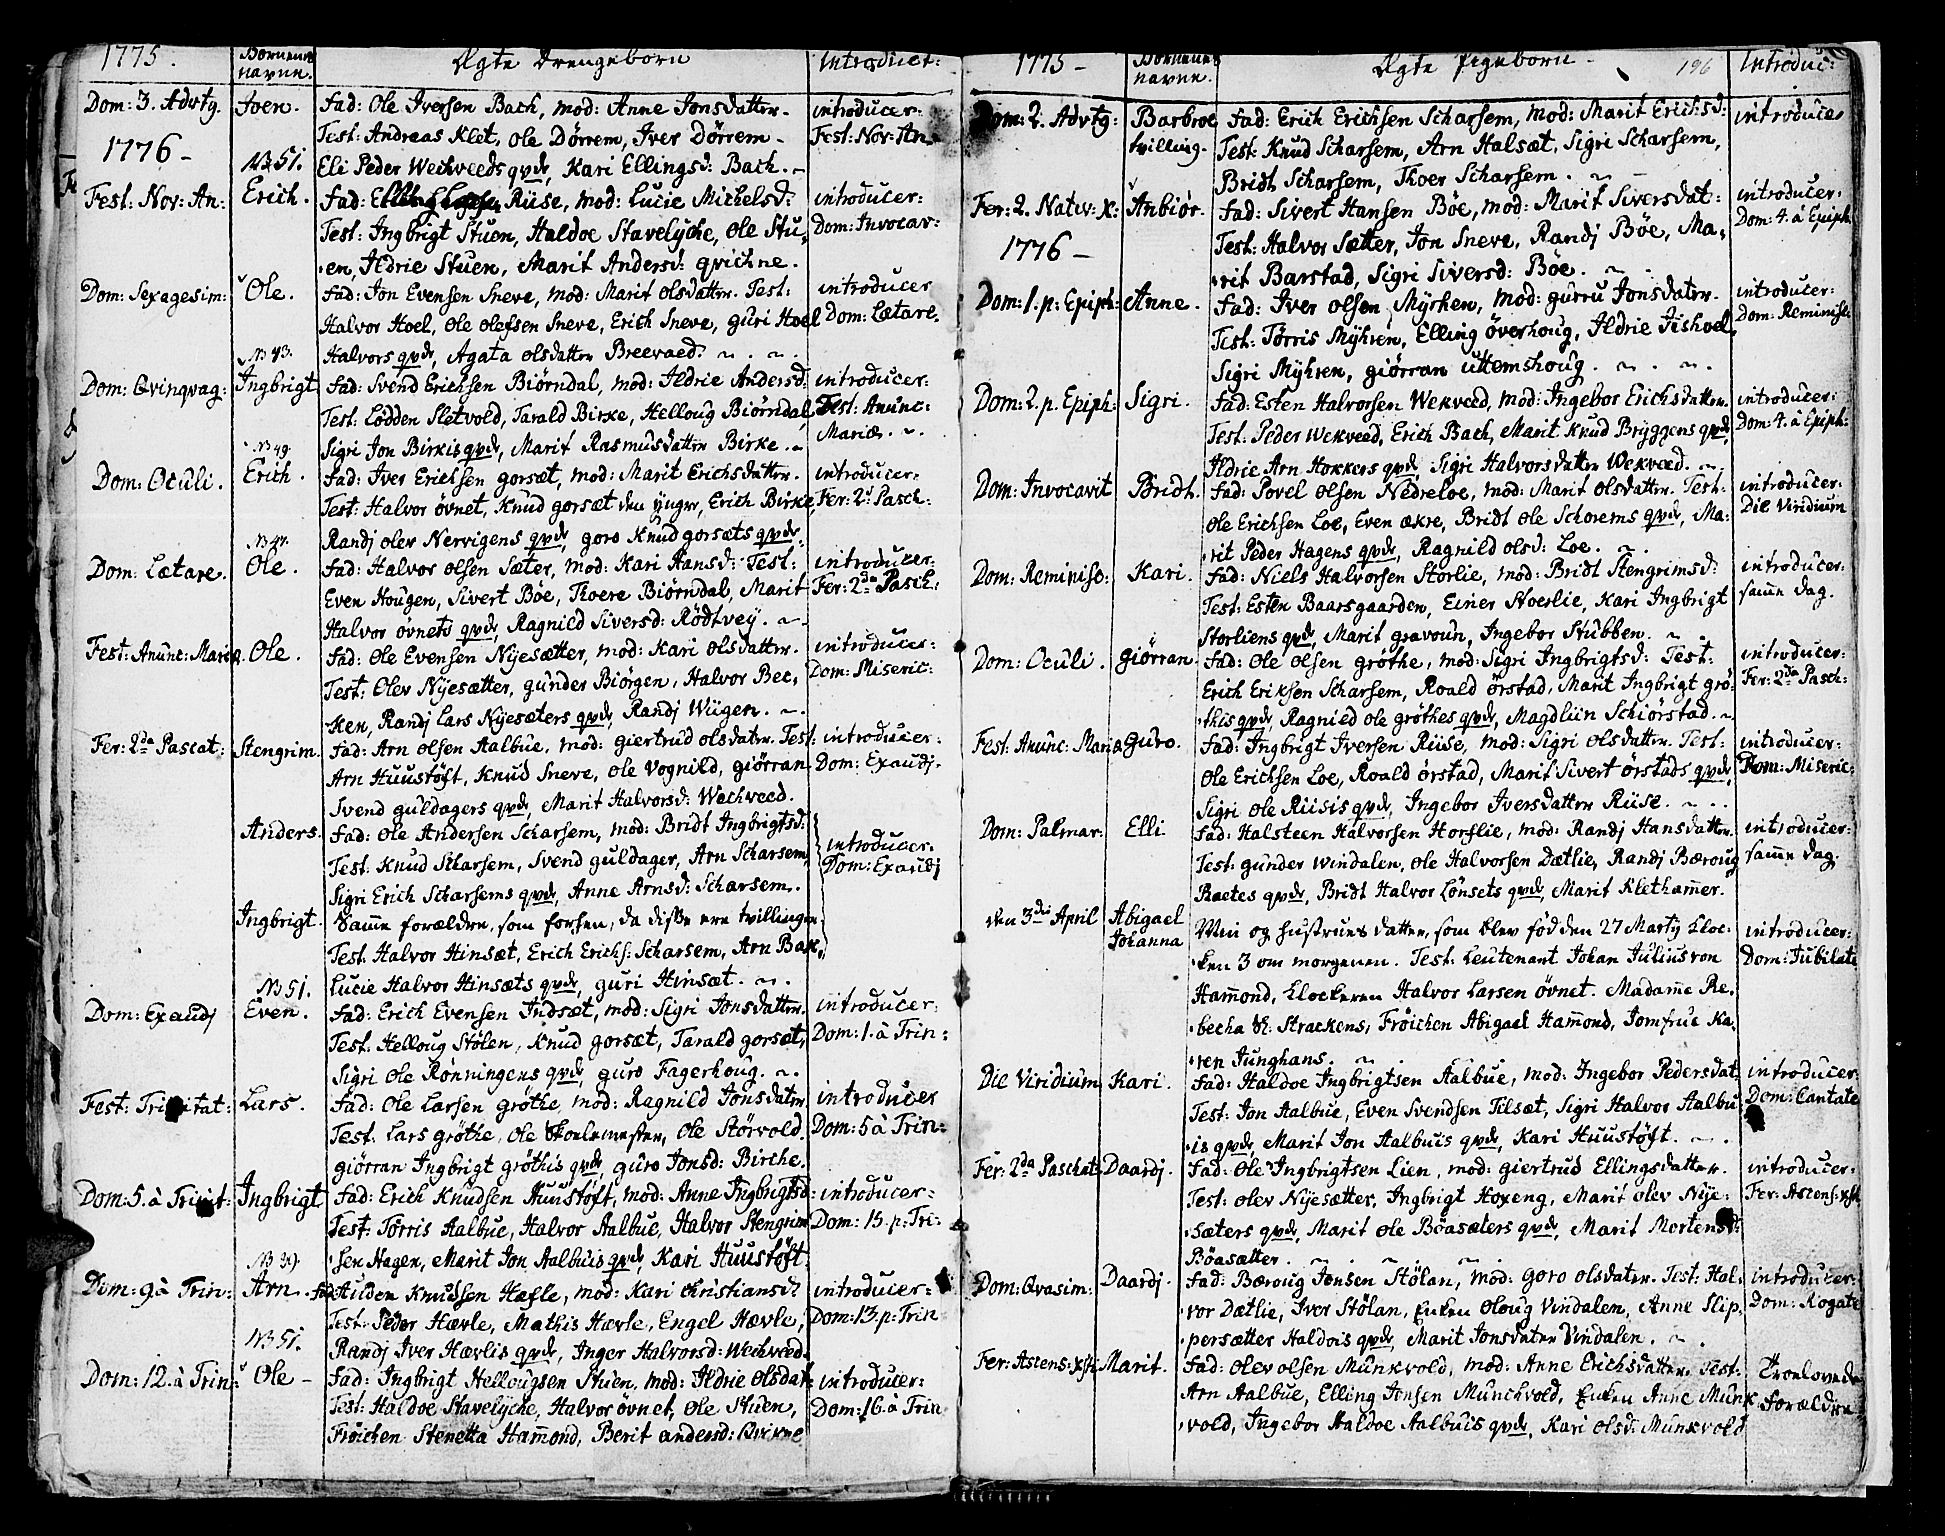 1775.
Børnenes navne.
Ægte Drengebørn
Introduct:
Dom: 3. Advtg.
Joen.
Fad: Ole Iversen Bach, mod: Anne Jonsdatter.
introducer:
Test: Andreas Klet, Ole Dörrem, Iver Dörrem -
Fest: Nov: An.
1776 -
N3 51.
Eli Peder Weckveeds qvde, Kari Ellingsd: Bach. -
Fest: Nov: An:
Erich.
Fad: Riise, mod: Lucie Michelsd:
introducer:
Test: Ingbrigt Stuen, Haldoe Stavelyche, Ole Stu-
Dom: Invocav:
en, Ildrie Stuen, Marit Andersd: qvichne.
Dom: Sexagesim:
Ole.
Fad: Jon Evensen Sneve, mod: Marit Olsdatter. Test:
introducer
Halvor Hoel, Ole Olefsen Sneve, Erich Sneve, guri Hoel
Dom: Lætare.
N3 43.
Halvors qvde, Agata Olsdatter Breevaed.
Dom: Qvinqvag:
Ingbrigt
Fad: Svend Erichsen Biörndal, mod: Ildrie Andersd:
introducer:
Test: Lödden Sletvold, Tarald Birke, Helloug Biörndal,
Fest: Anunc:
Mariæ.
N3 49.
Sigri Jon Birkis qvde, Marit Rasmusdatter Birke. -
Dom: Oculi.
Erich.
Fad: Iver Erichsen gorsæt, mod: Marit Erichsdatter.
introducer:
Test: Halvor övnet, Knud gorsæt den yngre, Erich Birke
Fer: 2: Pasch:
N3 47.
Randj olev Nervigens qvde, goro Knud gorsæts qvde.
Dom: Lætare.
Ole.
Fad: Halvor Olsen Sæter, mod: Kari Hansd: Test:
introducer:
Even Hougen, Sivert Böe, Thoere Biörndal, Marit
Fer: 2da Pasch:
Halvor övnets qvde, Ragnild Siversd: Rödtvey.
Fest: Anunc: Mariæ.
Ole.
Fad: Ole Evensen Nyesætter, mod: Kari Olsdatter.
introducer:
Test: Olev Nyesætter, gunder Biörgen, Halvor Bec,
Dom: Miseric:
ken, Randj Lars Nyesæters qvde, Randj Wiigen.
Fer: 2da Pascat:
Stengrim.
Fad: Arn Olsen Aalbue, mod: giertrud Olsdater. Test:
introducer:
Arn Huustöft, Knud Sneve, Ole Vognild, giörran
Dom: Exaudj.
Svend guldagers qvde, Marit Halvorsd: Weckveed.
Anders.
Fad: Ole Andersen Scharsem, mod: Bridt Ingbrigtsd:
introducer:
Test: Knud Scharsem, Svend guldager, Arn Scharsem,
Dom: Exaudj
Sigri Erich Scharsems qvde, Anne Arnsd: Scharsem.
Ingbrigt.
Samme forældre, som forhen, da disse ere tvillinger.
Test: Halvor Hinsæt, Erich Erichs: Scharsem, Arn Bak,
N3 51.
Lucie Halvor Hinsæts qvde, guri Hinsæt.
Dom: Exaudj
Even.
Fad: Erich Evensen Indsæt, mod: Sigri Jonsdatter.
introducer:
Test: Helloug Stölen, Knud gorsæt, Tarald gorsæt,
Dom: 1. à Trin:
Sigri Ole Rönningens qvde, guro Fagerhoug.
Fest: Trinitat:
Lars.
Fad: Ole Larsen gröthe, mod: Ragnild Jonsdater
introducer
Test: Lars gröthe, Ole Skoelemester, Ole Störvold.
Dom: 5 à Trin:
giörran Ingbrigt gröthis qvde, guro Jonsd: Birche.
Dom: 5. à Trinit:
Ingbrigt
Fad: Erich Knudsen Huustöft, mod: Anne Ingbrigtsd:
introducer:
Test: Törris Aalbue, Halvor Aalbue, Halvor Stengrim
Dom: 15. p: Tri:
sen Hagen, Marit Jon Aalbuis qvde, Kari Huustöft
Dom: 9 à Trin:
Arn.
Fad: Hilden Knudsen Hæfle, mod: Kari Christiansd:
introducer:
Test: Peder Hævle, Mathis Hævle, Engel Hævle,
Dom: 13. p: Trin
N3 51.
Randj Iver Hævlis qvde, Inger Halvorsd: Weckveed.
Dom: 12. à Trin:
Ole -
Fad: Ingbrigt Hellougsen Stuen, mod: Ildrie Olsdat:
introducer:
Test: Haldoe Stavelyche, Halvor övnet, Ole Stuen,
Dom: 16. à Trin
Fröichen Stenetta Hammond, Berit andersd:
1775 -
Børnenes navne.
Ægte Pigebörn -
196
Introduc:
Dom: 2. Advtg:
Barbroe
Fad: Erich Erichsen Scharsem, mod: Marit Erichsd:
introducer
tvilling.
Test: Knud Scharsem, Arn Halsæt, Sigri Scharsem,
Bridt Scharsem, Thoer Scharsem.
Fer: 2. Nativ: X:
Anbiör.
Fad: Sivert Hansen Böe, mod: Marit Siversdat:
introducer:
Test: Halvor Sætter, Jon Sneve, Randj Böe, Ma-
Dom: 4. à Epiph
1776 -
rit Barstad, Sigri Siversd: Böe.
Dom: 1. p: Epiph:
Anne.
Fad: Iver Olsen Myrhen, mod: gurru Jonsdater.
introducer:
Test: Törris Myhren, Elling överhoug, Ildrie Fishoel,
Dom: Reminisc:
Sigri Myhren, giörran uttemshoug.
Dom: 2. p. Epiph:
Sigri.
Fad: Esten Halvorsen Wekveed, mod: Ingebor Erichsdatter.
introducer:
Test: Peder Wekveed, Erich Bach, Marit Knud Bryggens qvde,
Dom: 4. à Epiph:
Ildrie Arn Hokkers qvde, Sigri Halvorsdatter Wekveed.
Dom: Invocavit
Bridt.
Fad: Povel Olsen Nedreloe, mod: Marit Olsdatter. Test:
introducer:
Ole Erichsen Loe, Even ækre, Bridt Ole Schorems qvde, Ma-
Die Viridium
rit Peder Hagens qvde, Ragnild Olsd: Loe.
Dom: Reminisc:
Kari.
Fad: Niels Halvorsen Storlie, mod: Bridt Stengrimsd:
introducer:
Test: Esten Baarsgaarden, Einer Stoerlie, Kari Ingbrigt
samme dag.
Storliens qvde, Marit gravoun, Ingebor Stubben.
Dom: Oculi.
giörran.
Fad: Ole Olsen gröthe, mod: Sigri Ingbrigtsd: Test:
introducer:
Erich Eriksen Scharsem, Roald örstad, Marit Ingbrigt grö-
Fer: 2da Pasch:
this qvde, Ragnild Ole gröthes qvde, Magdliin Schiörstad.
Fest: Anunc: Mariæ
guro.
Fad: Ingbrigt Iversen Riise, mod: Sigri Olsdatter. Test:
introducer:
Ole Erichsen Loe, Roald örstad, Marit Sivert örstads qvde,
Dom: Miseric:
Sigri Ole Riisis qvde, Ingebor Iversdatter Riise.
Dom: Palmar:
Elli
Fad: Halsteen Halvorsen Horslie, mod: Randj Hansdatter.
introducer:
Test: gunder Windalen, Ole Halvorsen Dætlie, Randj Bæroug
samme dag.
Raetes qvde, Bridt Halvor Lönsets qvde, Marit Klethammer.
den 3die April
Abigael Johanna
Min og hustrues datter, som blev föd den 27 Martij kloc-
introducer:
ken 3 om morgenen. Test: Leutenant Johan Julius von
Dom: Jubilate
Hammond, klockeren Halvor Larsen övnet. Madamme Re-
becha Strackens, Fröichen Abigael Hammond, Jomfrue Ka-
ren Junghans.
Die Viridium
Kari.
Fad: Haldoe Ingbrigtsen Aalbue, mod: Ingebor Pedersdat
introducer:
Test: Jon Aalbue, Even Svendsen Tilsæt, Sigri Halvor Aalbu
Dom: Cantate
is qvde, Marit Jon Aalbuis qvde, Kari Huustöft.
Fer: 2da Paschat:
Daardj.
Fad: Ole Ingbrigtsen Lien, mod: giertrud Ellingsdatter.
introducer:
Test: Olev Nyesætter, Ingbrigt Hoxeng, Marit Olev Nye-
Fer: Ascens:
sæters qvde, Marit Ole Böasæters qvde, Marit Mortensd:
Böasætter.
Dom: Qvasim:
Daardj.
Fad: Bæroug Jonsen Stölan, mod: goro Olsdater. Test: Hal-
introducer:
vor Dætlie, Iver Stölan, Enken Oloug Vindalen, Anne Slip,
Dom: Rogate
persætter Haldois qvde, Marit Jonsdater Vindalen.
Fer: Ascens:
Marit.
Fad: Olev Olsen Munkvold, mod: Anne Erichsdatter. Test:
Troelovede
Arn Aalbue, Elling Jonsen Munchvold, Enken Anne Munk
forældre
vold, Ingebor Haldoe Aalbuis qvde, Kari Olsd: Munkvold